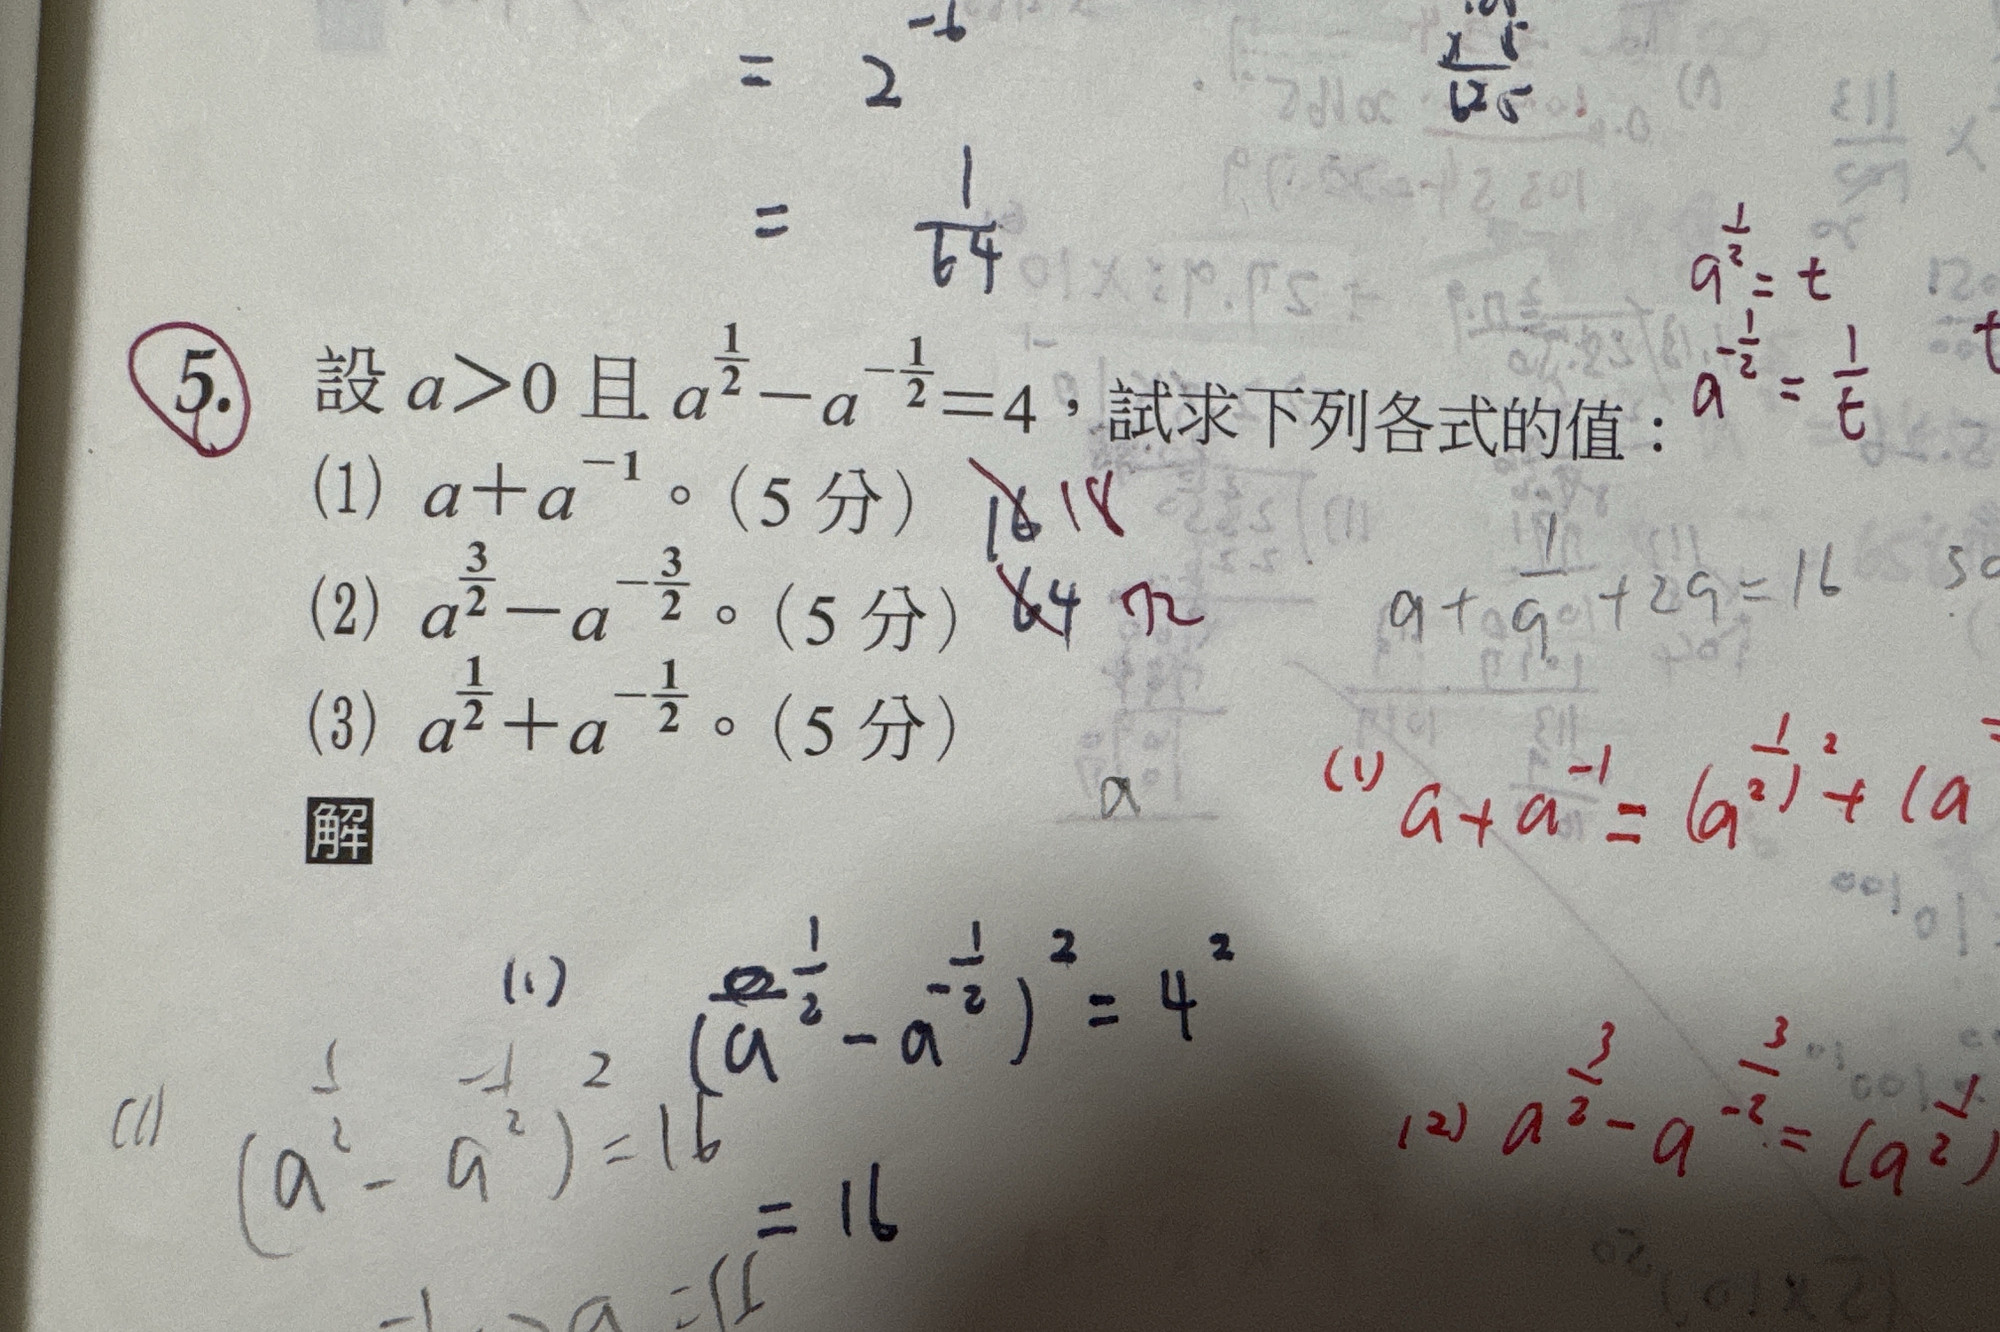 = 2^{-6}
= \frac{1}{64}
x 5
625
a^{\frac{1}{2}} = t
a^{-\frac{1}{2}} = \frac{1}{t}
5. 設 a>0 且 a^{\frac{1}{2}}-a^{-\frac{1}{2}}=4，試求下列各式的值：
(1) a+a^{-1}。(5 分) 16 18
(2) a^{\frac{3}{2}}-a^{-\frac{3}{2}}。(5 分) 64 72
(3) a^{\frac{1}{2}}+a^{-\frac{1}{2}}。(5 分)
a + \frac{1}{a} + 2a = 16
a
解
(1) a + a^{-1} = (a^{\frac{1}{2}})^2 + (a
(1) (a^{\frac{1}{2}} - a^{-\frac{1}{2}})^2 = 4^2
(1) (a^{\frac{1}{2}} - a^{-\frac{1}{2}})^2 = 16
= 16
(2) a^{\frac{3}{2}} - a^{-\frac{3}{2}} = (a^{\frac{1}{2}})